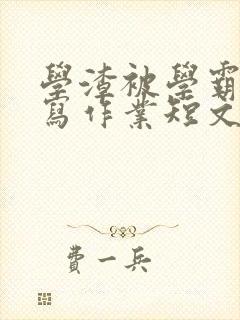 學渣被學霸
寫作業短文
費一兵